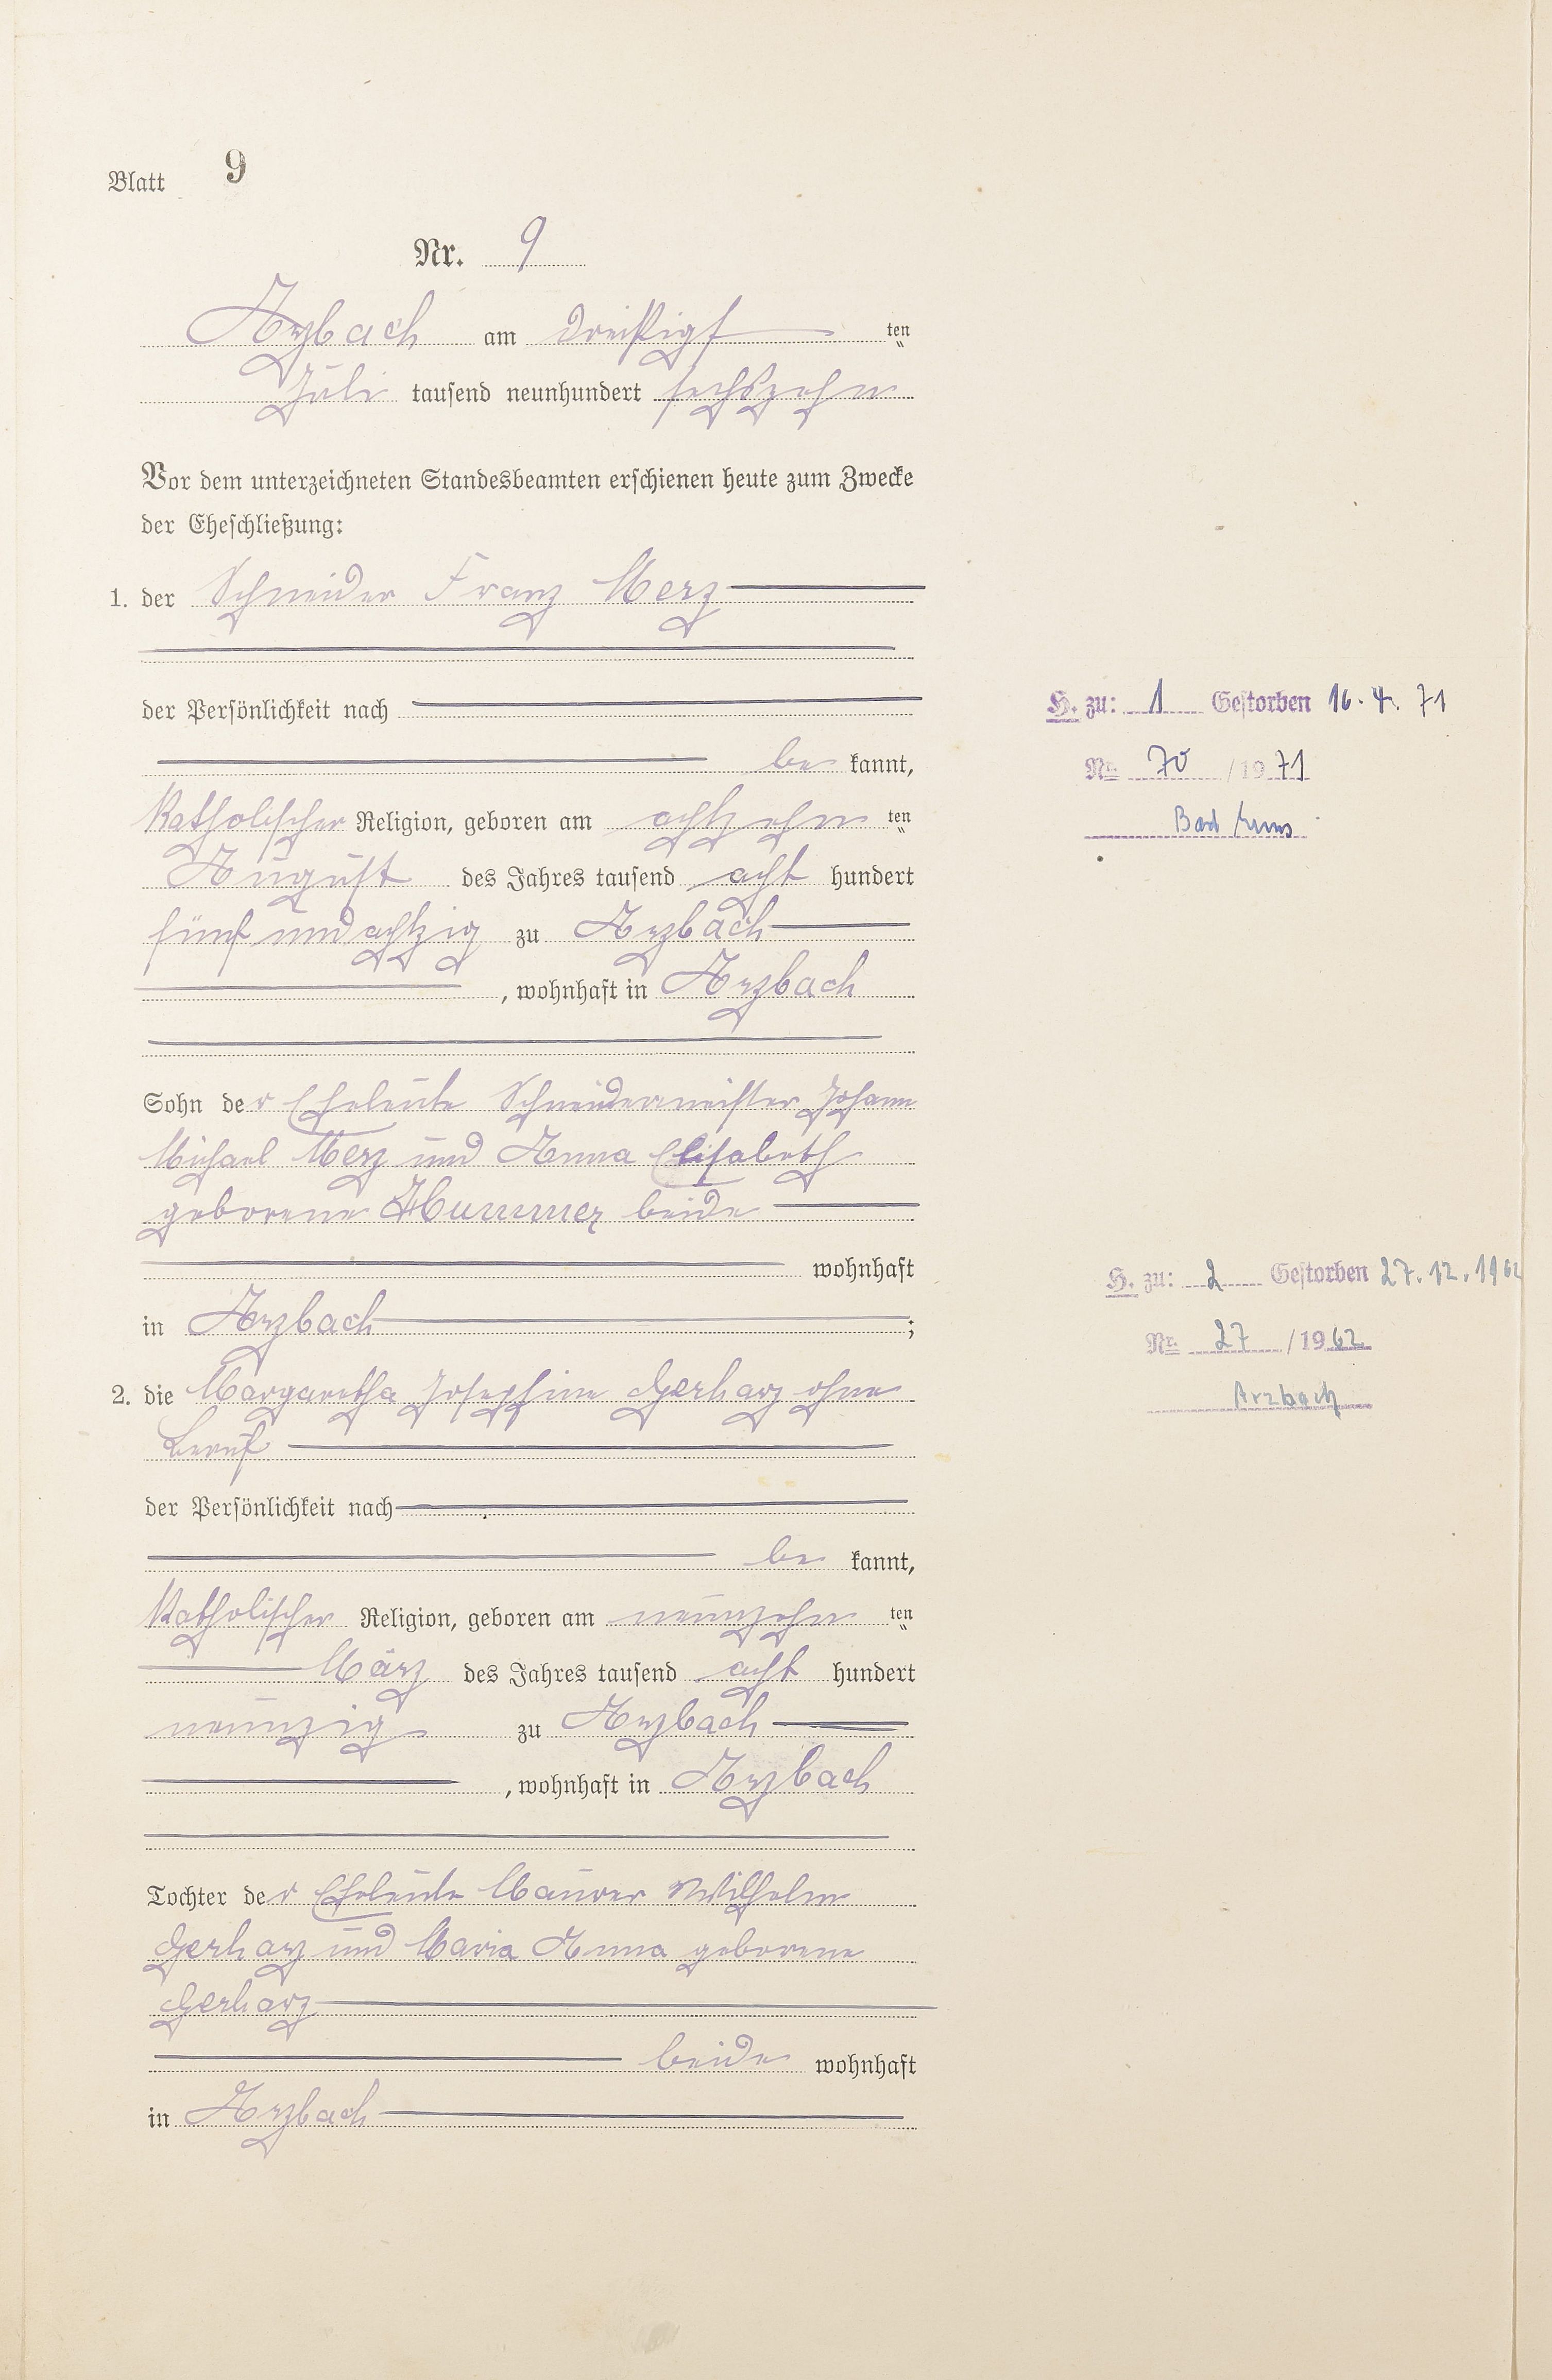 Blatt 9
Nr. 9
Arzbach am dreißigsten
Juli tausend neunhundert sechszehn
Vor dem unterzeichneten Standesbeamten erschienen heute zum Zwecke
der Eheschließung:
1. der Schneider Franz Merz
der Persönlichkeit nach
be kannt,
Katholischer Religion, geboren am achtzehn ten
August des Jahres tausend acht hundert
fünf und achtzig zu Arzbach
, wohnhaft in Arzbach
Sohn der Eheleute Schneidermeister Johann
Michael Merz und Anna Elisabeth
geborene Hummer beide
wohnhaft
in Arzbach ;
2. die Margaretha Josephine Gerharz ohne
Beruf
der Persönlichkeit nach
be kannt,
Katholischer Religion, geboren am neunzehn ten
März des Jahres tausend acht hundert
neunzig zu Arzbach
, wohnhaft in Arzbach
Tochter der Eheleute Maurer Wilhelm
Gerharz und Maria Anna geborene
Gerharz
beide wohnhaft
in Arzbach
H. zu: 1 Gestorben 16. 4. 71
Nr. 70 / 1971
Bad Ems
H. zu: 2 Gestorben 27. 12. 1962
Nr. 27 / 1962
Arzbach